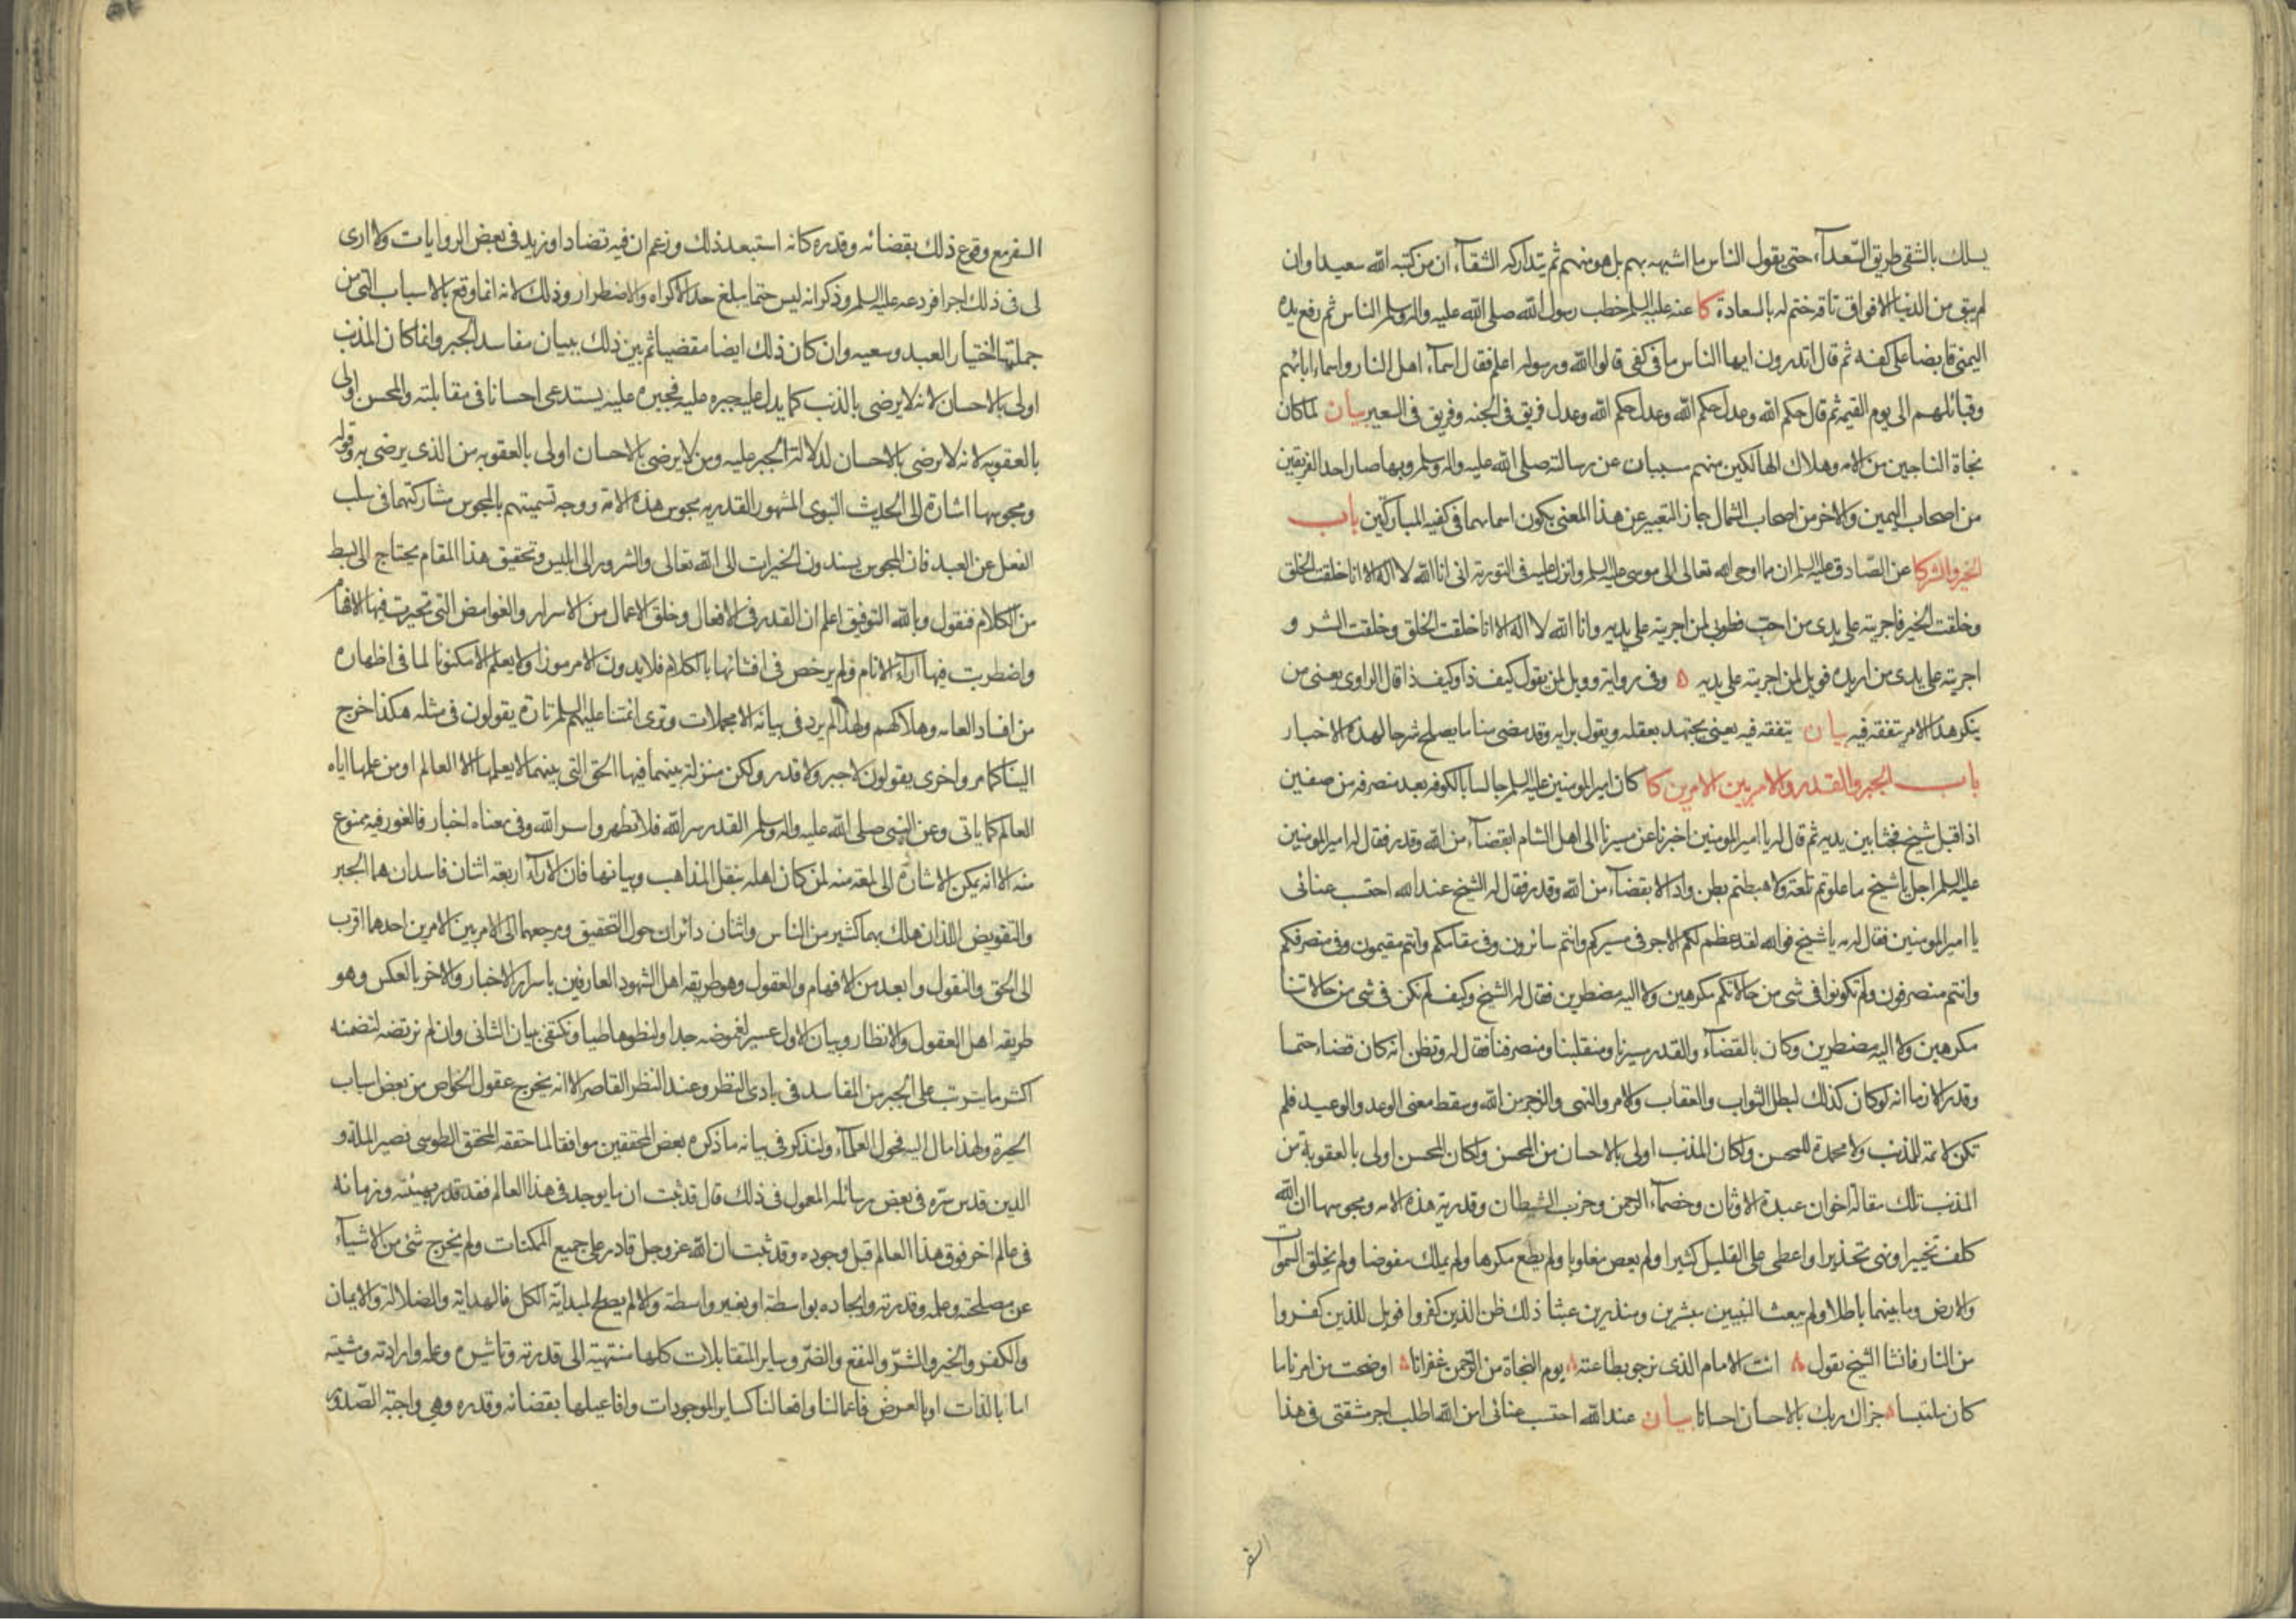 يسلك بالشقي طريق السّعدآء حتى يقول الناس ما اشبهه بهم بل هو منهم ثم يتداركه الشقآء ان من كتبه الله سعيدا وان
لم يبق من الدنيا الا فواق ناقة ختم له بالسعادة كا عنه عليه السلم خطب رسول الله صلى الله عليه واله وسلم الناس ثم رفع يده
اليمنى قابضا على كفه ثم قال اتدرون ايها الناس ما في كفى قالوا الله ورسوله اعلم فقال اسمآء اهل النار واسماء ابائهم
وقبائلهم الى يوم القيمه ثم قال حكم الله وعدل حكم الله وعدل حكم الله وعدل فريق في الجنه وفريق في السعير بيان لما كان
نجاة الناجين من الامه وهلاك الهالكين منهم سببان عن رسالته صلى الله عليه واله وسلم وبها صار احد الفريقين
من اصحاب اليمين والاخر من اصحاب الشمال جاز التعبير عن هذا المعنى بكون اسمائهما في كفيه المباركتين باب
الخير والشر كا عن الصّادق عليه السلم ان مما اوحى الله تعالى الى موسى عليه السلم وانزل عليه في التورية انى انا الله لا اله الا انا خلقت الخلق
وخلقت الخير فاجريته على يدى من احب فطوبى لمن اجريته على يديه وانا الله لا اله الا انا خلقت الخلق وخلقت الشر و
اجريته على يدى من اريده فويل لمن اجريته على يديه ه وفى رواية وويل لمن يقول كيف ذا وكيف ذا قال الراوى يعنى من
ينكر هذا الامر بتفقه فيه بيان يتفقه فيه يعنى يجتهد بعقله ويقول برايه وقد مضى منا ما يصلح شرحا لهذه الاخبار
باب الجبر والقدر والامر بين الامرين كا كان امير المومنين عليه السلم جالسا بالكوفه بعد منصرفه من صفين
اذ اقبل شيخ فجثا بين يديه ثم قال له يا امير المومنين اخبرنا عن مسيرنا الى اهل الشام ابقضآء من الله وقدر فقال له امير المومنين
عليه السلم اجل يا شيخ ما علوتم تلعة ولا هبطتم بطن واد الا بقضآء من الله وقدر فقال له الشيخ عند الله احتسب عنائى
يا امير المومنين فقال له مه يا شيخ فوالله لقد عظم لكم الاجر في مسيركم وانتم سائرون وفي مقامكم وانتم مقيمون وفي منصرفكم
وانتم منصرفون ولم تكونوا في شى من حالاتكم مكرهين ولا اليه مضطرين فقال له الشيخ وكيف لم نكن في شى من حالاتنا
مكرهين ولا اليه مضطرين وكان بالقضآء والقدر مسيرنا ومنقلبنا ومنصرفنا فقال له وتظن انه كان قضاء حتما
وقدرا لازما انه لو كان كذلك لبطل الثواب والعقاب والامر والنهى والزجر من الله وسقط معنى الوعد والوعيد فلم
تكن لائمة للمذنب ولا محمدة للمحسن ولكان المذنب اولى بالاحسان من المحسن ولكان المحسن اولى بالعقوبة من
المذنب تلك مقالة اخوان عبدة الاوثان وخصمآء الرحمن وحزب الشيطان وقدرية هذه الامه ومجوسها ان الله
كلف تخييرا ونهى تحذيرا واعطى على القليل كثيرا ولم يعص مغلوبا ولم يطع مكرها ولم يملك مفوضا ولم يخلق السموات
والارض وما بينهما باطلا ولم يبعث النبيين مبشرين ومنذرين عبثا ذلك ظن الذين كفروا فويل للذين كفروا
من النار فانشا الشيخ يقول ه انت الامام الذى نرجو بطاعته ه يوم النجاة من الرّحمن غفرانا ه اوضحت من امرنا ما
كان ملتبسا ه جزاك ربك بالاحسان احسانا بيان عند الله احتسب عنائى اى من الله اطلب اجر مشقتى في هذا
السفر
السفر مع وقوع ذلك بقضائه وقدره كانه استبعد ذلك وزعم ان فيه تضادا وزيد في بعض الروايات ولا ارى
لى في ذلك اجرا فردعه عليه السلم وذكر انه ليس حتما يبلغ حد الاكراه والاضطرار وذلك لانه انما وقع بالاسباب التى من
جملتها اختيار العبد وسعيه وان كان ذلك ايضا مقضيا ثم بين ذلك ببيان مفاسد الجبر وانما كان المذنب
اولى بالاحسان لانه لا يرضى بالذنب كما يدل عليه جبره عليه فجبره عليه يستدعى احسانا في مقابلته والمحسن اولى
بالعقوبه لانه لا يرضى بالاحسان لدلالة الجبر عليه ومن لا يرضى بالاحسان اولى بالعقوبه من الذى يرضى به وقوله
ومجوسها اشارة الى الحديث النبوى المشهور القدريه مجوس هذه الامة ووجه تسميتهم بالمجوس مشاركتهما في سلب
الفعل عن العبد فان المجوس يسندون الخيرات الى الله تعالى والشرور الى ابليس وتحقيق هذا المقام يحتاج الى بسط
من الكلام فنقول وبالله التوفيق اعلم ان القدر في الافعال وخلق الاعمال من الاسرار والغوامض التى تحيرت فيها الافهام
واضطربت فيها آرآء الانام ولم يرخص في افشائها بالكلام فلا يدون الا مرموزا ولا يعلم الا مكنونا لما في اظهاره
من افساد العامه وهلاكهم ولهذا لم يرد في بيانه الا مجملات وترى ائمتنا عليهم السلم تارة يقولون في مثله هكذا خرج
الينا كما مر واخرى يقولون لا جبر ولا قدر ولكن منزلة بينهما فيها الحق التى بينهما لا يعلمها الا العالم او من علمها اياه
العالم كما ياتى وعن النبى صلى الله عليه واله وسلم القدر سر الله فلا تظهروا سر الله وفى معناه اخبار فالغور فيه ممنوع
منه الا انه يمكن الاشارة الى لمعة منه لمن كان اهله بنقل المذاهب وبيانها فان الارآء اربعة اثنان فاسدان هما الجبر
والتفويض اللذان هلك بهما كثير من الناس واثنان دائران حول التحقيق ومرجعهما الى الامر بين الامرين احدهما اقرب
الى الحق والنقول وابعد من الافهام والعقول وهو طريقه اهل الشهود العارفين باسرار الاخبار والاخر بالعكس وهو
طريقه اهل العقول والانظار وبيان الاول عسير لغموضه جدا ولنطوها طيا ونكتفى ببيان الثانى وان لم نرتضه لتضمنه
اكثر ما يترتب على الجبر من المفاسد في بادى النظر وعند النظر القاصر الا انه يخرج عقول الخواص من بعض اسباب
الحيرة ولهذا مال اليه فحول العلمآء ولنذكر في بيانه ما ذكره بعض المحققين موافقا لما حققه المحقق الطوسى نصير الملة و
الدين قدس سرّه في بعض رسائله المعمول في ذلك قال قد ثبت ان ما يوجد في هذا العالم فقد قدر بهيئته وزمانه
في عالم اخر فوق هذا العالم قبل وجوده وقد ثبت ان الله عز وجل قادر على جميع الممكنات ولم يخرج شئ من الاشيآء
عن مصلحته وعلمه وقدرته وايجاده بواسطة او بغير واسطة والا لم يصلح لمبدائة الكل فالهداية والضلالة والايمان
والكفر والخير والشرّ والنفع والضّر وساير المتقابلات كلها منتهية الى قدرته وتاثيره وعلمه وارادته ومشيته
اما بالذات او بالعرض فاعمالنا وافعالنا كساير الموجودات وافاعيلها بقضائه وقدره وهى واجبة الصّدور